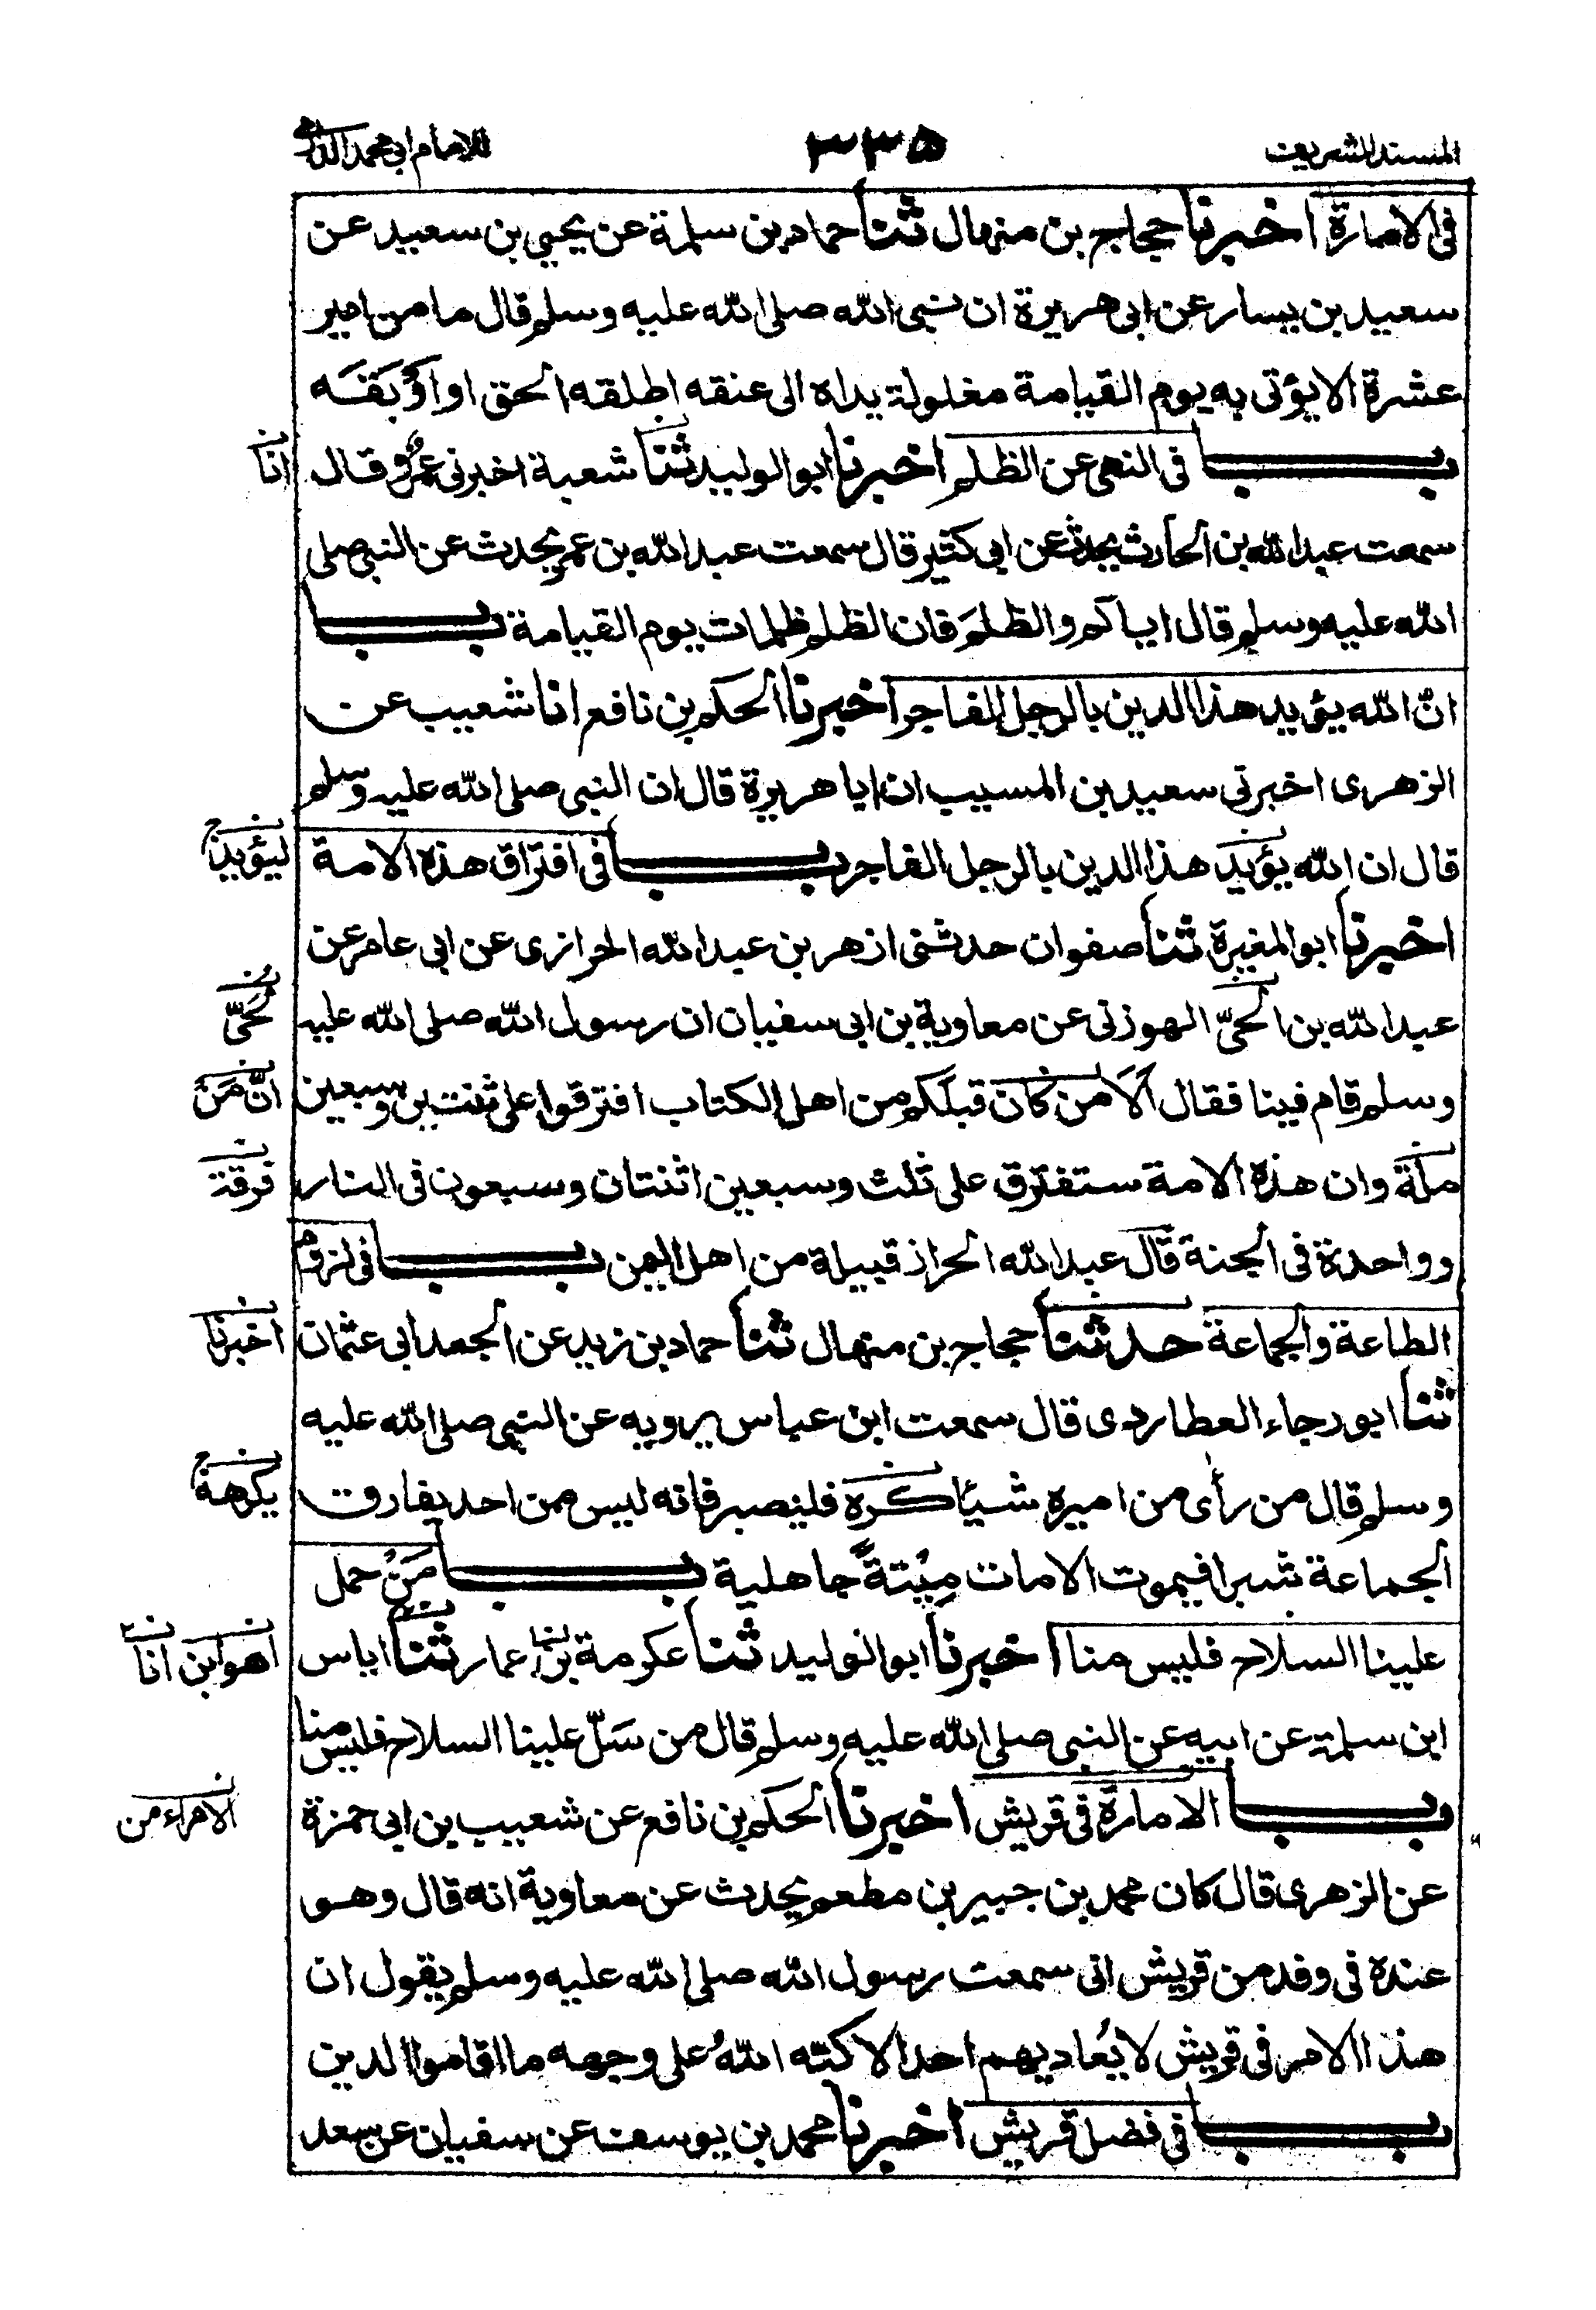 المسند الشريف
٣٣٥
للامام ابي محمد الدارمي
فى الامارة اخبرنا حجاج بن منهال ثنا حماد بن سلمة عن يحيى بن سعيد عن
سعيد بن يسار عن ابى هريرة ان نبى الله صلى الله عليه وسلم قال ما من امير
عشرة الا يؤتى به يوم القيامة مغلولة يداه الى عنقه اطلقه الحق او اَوْبَقَه
بــــاب فى النهى عن الظلم اخبرنا ابو الوليد ثنا شعبة اخبرنى عمرٌو قال
انا
سمعت عبد الله بن الحارث يحدث عن ابى كثير قال سمعت عبد الله بن عمرو يحدث عن النبى صلى
الله عليه وسلم قال اياكم والظلمَ فان الظلم ظلمات يوم القيامة بــــاب
انّ الله يؤيد هذا الدين بالرجل الفاجر اخبرنا الحكم بن نافع انا شعيب عن
الزهرى اخبرنى سعيد بن المسيب ان ابا هريرة قال ان النبى صلى الله عليه وسلم
قال ان الله يؤيد هذا الدين بالرجل الفاجر بــــاب فى افتراق هذه الامة
ليؤيد
اخبرنا ابو المغيرة ثنا صفوان حدثنى ازهر بن عبد الله الحرازى عن ابى عامر عن
عبد الله بن الحىّ الهوزنى عن معاوية بن ابى سفيان ان رسول الله صلى الله عليه
لُحَىّ
وسلم قام فينا فقال اَلَا من كان قبلكم من اهل الكتاب افترقوا على ثنتين وسبعين
انّ مَن
ملة وان هذه الامة ستفترق على ثلث وسبعين اثنتان وسبعون فى النار
فرقة
وواحدة فى الجنة قال عبد الله الحراز قبيلة من اهل اليمن بــــاب فى لزوم
الطاعة والجماعة حدثنا حجاج بن منهال ثنا حماد بن زيد عن الجعد ابى عثمان
اخبرنا
ثنا ابو رجاء العطاردى قال سمعت ابن عباس يرويه عن النبى صلى الله عليه
وسلم قال من رأى من اميره شيئا كره فليصبر فانه ليس من احد يفارق
يكرهه
الجماعة شبرا فيموت الا مات مِيْتةً جاهلية بــــاب مَنْ حمل
علينا السلاح فليس منا اخبرنا ابو الوليد ثنا عكرمة بن عمار ثنا اياس
اهو ابن انا
ابن سلمة عن ابيه عن النبى صلى الله عليه وسلم قال من سَلّ علينا السلاح فليس منا
بــــاب الامارة فى قريش اخبرنا الحكم بن نافع عن شعيب بن ابى حمزة
الامراء من
عن الزهرى قال كان محمد بن جبير بن مطعم يحدث عن معاوية انه قال وهو
عنده فى وفد من قريش انى سمعت رسول الله صلى الله عليه وسلم يقول ان
هذا الامر فى قريش لا يُعاديهم احد الا كبّه اللهُ على وجهه ما اقاموا الدين
بــــاب فى فضل قريش اخبرنا محمد بن يوسف عن سفيان عن سعد